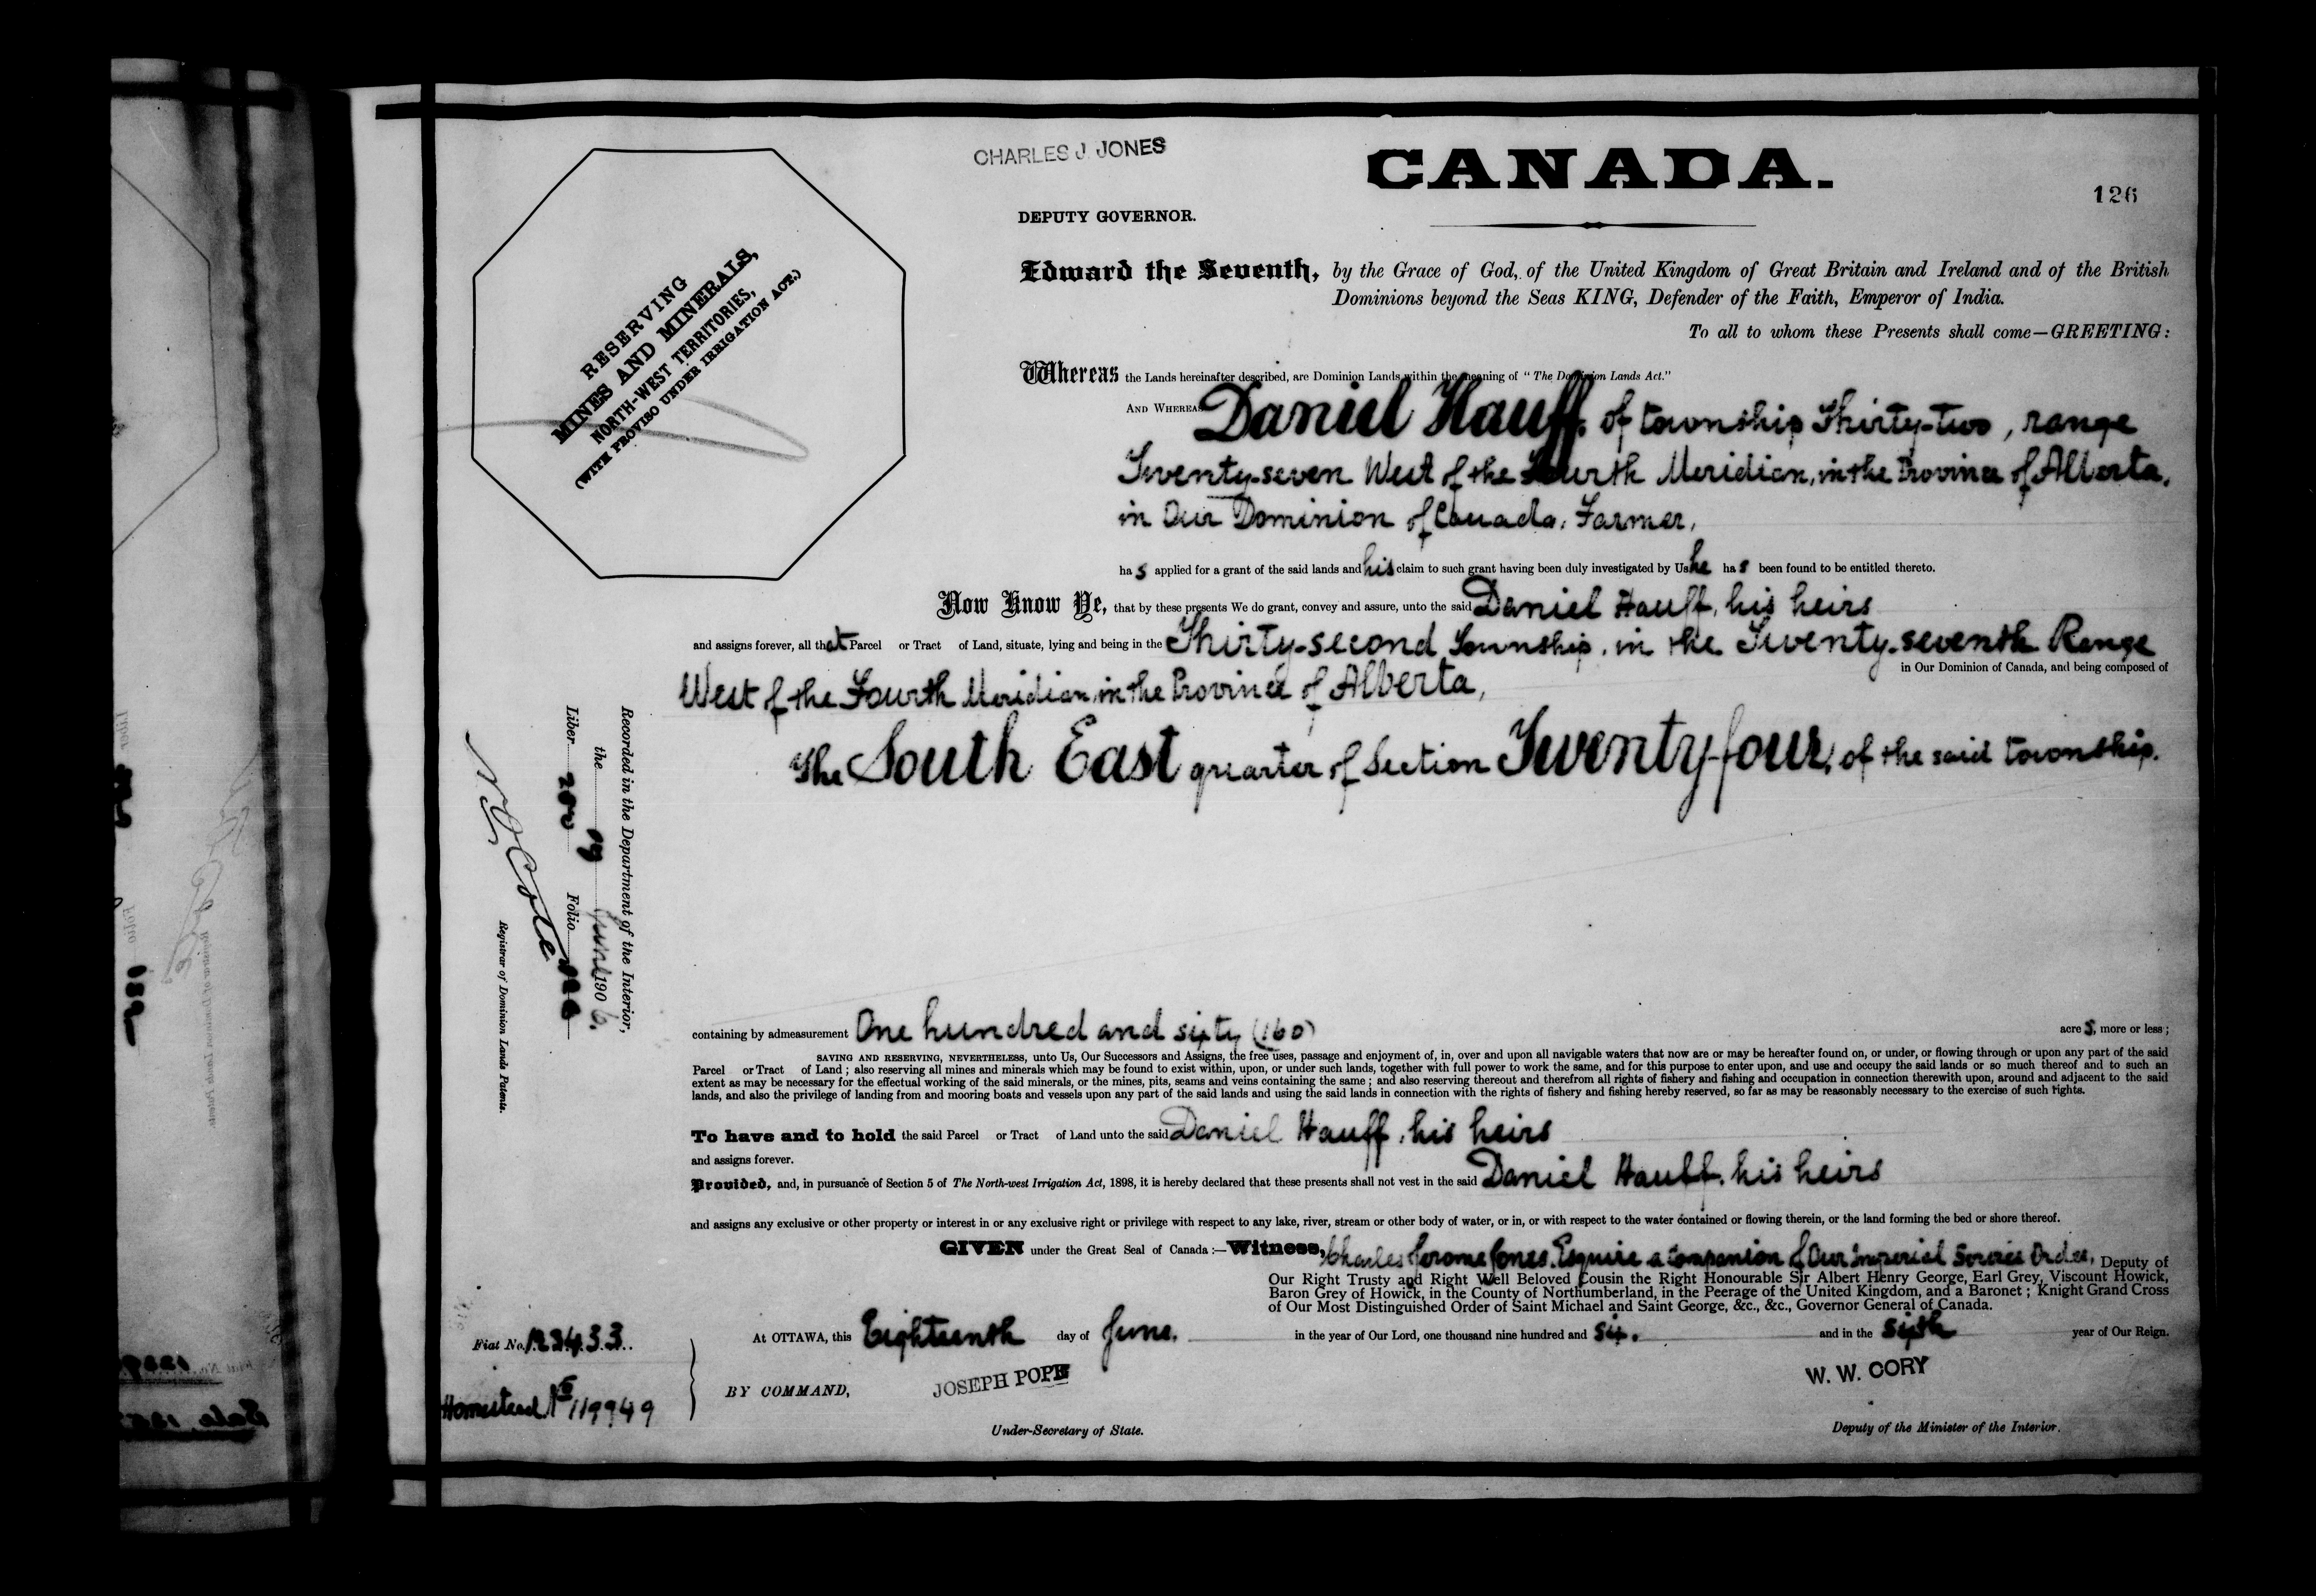 CHARLES J. JONES
CANADA.
126
DEPUTY GOVERNOR.
RESERVING
MINES AND MINERALS,
NORTH-WEST TERRITORIES,
(WITH PROVISO UNDER IRRIGATION ACT.)
Edward the Seventh, by the Grace of God, of the United Kingdom of Great Britain and Ireland and of the British
Dominions beyond the Seas KING, Defender of the Faith, Emperor of India.
To all to whom these Presents shall come—GREETING:
Whereas the Lands hereinafter described, are Dominion Lands within the meaning of "The Dominion Lands Act."
AND WHEREAS Daniel Hauff, of township Thirty-two, range
Twenty-seven West of the Fourth Meridian, in the Province of Alberta,
in Our Dominion of Canada, Farmer,
has applied for a grant of the said lands and his claim to such grant having been duly investigated by Us he has been found to be entitled thereto.
Now Know Ye, that by these presents We do grant, convey and assure, unto the said Daniel Hauff, his heirs
and assigns forever, all that Parcel or Tract of Land, situate, lying and being in the Thirty-second Township, in the Twenty-seventh Range
in Our Dominion of Canada, and being composed of
West of the Fourth Meridian, in the Province of Alberta,
The South East quarter of Section Twenty-four, of the said township.
Recorded in the Department of the Interior,
the 09 June 1906.
Liber 200 Folio
N O Cote
Registrar of Dominion Lands Patents.
containing by admeasurement One hundred and sixty (160) acres, more or less;
SAVING AND RESERVING, NEVERTHELESS, unto Us, Our Successors and Assigns, the free uses, passage and enjoyment of, in, over and upon all navigable waters that now are or may be hereafter found on, or under, or flowing through or upon any part of the said
Parcel or Tract of Land; also reserving all mines and minerals which may be found to exist within, upon, or under such lands, together with full power to work the same, and for this purpose to enter upon, and use and occupy the said lands or so much thereof and to such an
extent as may be necessary for the effectual working of the said minerals, or the mines, pits, seams and veins containing the same; and also reserving thereout and therefrom all rights of fishery and fishing and occupation in connection therewith upon, around and adjacent to the said
lands, and also the privilege of landing from and mooring boats and vessels upon any part of the said lands and using the said lands in connection with the rights of fishery and fishing hereby reserved, so far as may be reasonably necessary to the exercise of such rights.
To have and to hold the said Parcel or Tract of Land unto the said Daniel Hauff, his heirs
and assigns forever.
Provided, and, in pursuance of Section 5 of The North-west Irrigation Act, 1898, it is hereby declared that these presents shall not vest in the said Daniel Hauff, his heirs
and assigns any exclusive or other property or interest in or any exclusive right or privilege with respect to any lake, river, stream or other body of water, or in, or with respect to the water contained or flowing therein, or the land forming the bed or shore thereof.
GIVEN under the Great Seal of Canada:—Witness, Charles Jerome Jones, Esquire a Companion of Our Imperial Service Order, Deputy of
Our Right Trusty and Right Well Beloved Cousin the Right Honourable Sir Albert Henry George, Earl Grey, Viscount Howick,
Baron Grey of Howick, in the County of Northumberland, in the Peerage of the United Kingdom, and a Baronet; Knight Grand Cross
of Our Most Distinguished Order of Saint Michael and Saint George, &c., &c., Governor General of Canada.
At OTTAWA, this Eighteenth day of June, in the year of Our Lord, one thousand nine hundred and six. and in the sixth year of Our Reign.
Fiat No. 123433.
Homestead No 119949
BY COMMAND,
JOSEPH POPE
W. W. CORY
Under-Secretary of State.
Deputy of the Minister of the Interior.